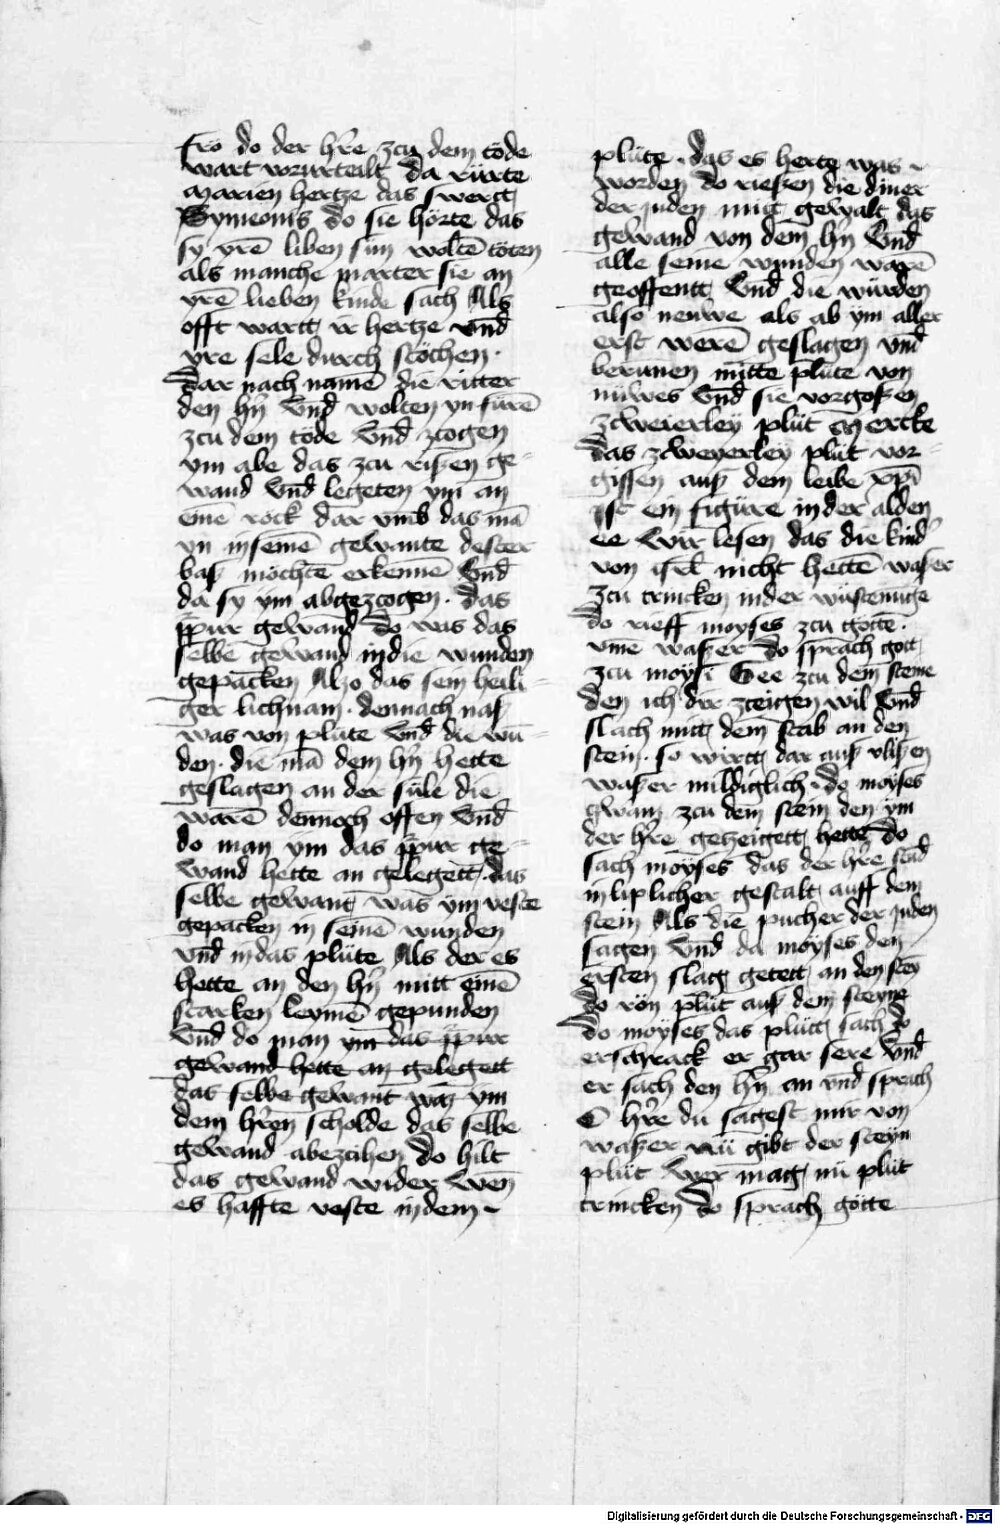 fro do der hr̄e zcu dem tode
wart vorurteilt da rurte
Marien hertze das swertt
Symeonis do sie hörte das
sy yrē liben sun woltē töten
als manche marter sie an
yrē lieben kinde sach Als
offt wartt ir hertze vnd̄
yre sele durch stöchen ·
Dar nach namē die ritter
den hr̄n Vnd̄ wolten yn fürē
zcu dem töde Vnd̄ zcogen
ym abe das zcu rißen ge-
wand Vnd̄ legeten ym an
einē rock dar vmb das mā
yn in seinē gewante dester
baß mochtē erkennē Vnd̄
da sy ym abgezcogen · das
ppur gewand Do was das
selbe gewand in die wunden
gepacken Alzo das sein heili-
ger lichnam · dennach naß
was von plüte Vnd̄ die wū-
den · die mā dem hr̄n hette
geslagen an der sule die
warē dennoch offen Vnd̄
do man ym das ppur ge-
wand hette an gelegett · das
selbe gewant was ym veste
gepacken in seinē wunden
vnd̄ in das plüte Als der es
hette an den hr̄n mitt einē
starken leymē gepunden
Vnd̄ do man ym das ppur
gewand hette an gelegett
das selbe gewant was ym
dem hr̄en scholde das selbe
gewand abezcihen Do hilt
das gewand wider wen
es haffte veste in dem -
plüte · das es herte was -
worden do rießen die diner
der juden mitt gewalt das
gewand von dem hr̄n Vnd̄
alle seine wunden warē
geoffentt Vnd̄ die würden
also neuwe als ab ym aller
erst werē geslagen vnd̄
berunnen mitte plüte von
nüwes Vnd̄ sie vorgoßen
zcweierley plüt Mercke
das zcweyerley plüt vor-
gissen auß dem leibe xp̄i
ist ein figüre in der alden
ee Wir lesen das die kind̄
von isrl̄ nicht hettē waßer
zcu trincken in der wüstenüge
do rieff moyses zcu gotte ·
vme waßer do sprach gott
zcu moysi Gee zcu dem steine
den ich dir zceigen wil Vnd̄
slach mitt dem stab an den
stein · so wirtt dar auß vlißen
waßer mildiglich · do moyses
qwam zcu dem stein den ym
der hr̄e gezeigett hette do
sach moyses das der hr̄e stūd
in liplicher gestalt auff dem
stein Als die pucher der juden
sagen Vnd̄ da moyses den
ersten slag getett an den stey
do rön plüt auß dem steyne
Do moyses das plütt sach do
erschrack er gar sere Vnd̄
er sach den hr̄n an vnd̄ sprach
O hr̄e du sagest mir von
waßer nü gibt der steyn
plüt Wer mag nü plüt
trincken Do sprach götte
Digitalisierung gefördert durch die Deutsche Forschungsgemeinschaft - DFG